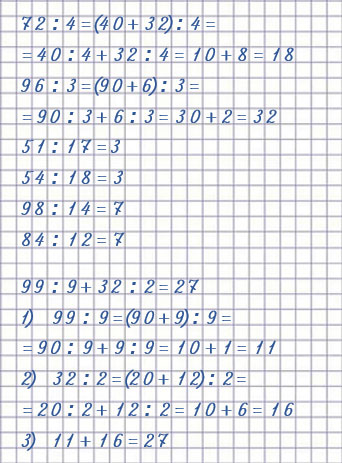 72 : 4 = (40 + 32) : 4 =
= 40 : 4 + 32 : 4 = 10 + 8 = 18
96 : 3 = (90 + 6) : 3 =
= 90 : 3 + 6 : 3 = 30 + 2 = 32
51 : 17 = 3
54 : 18 = 3
98 : 14 = 7
84 : 12 = 7
99 : 9 + 32 : 2 = 27
1) 99 : 9 = (90 + 9) : 9 =
= 90 : 9 + 9 : 9 = 10 + 1 = 11
2) 32 : 2 = (20 + 12) : 2 =
= 20 : 2 + 12 : 2 = 10 + 6 = 16
3) 11 + 16 = 27